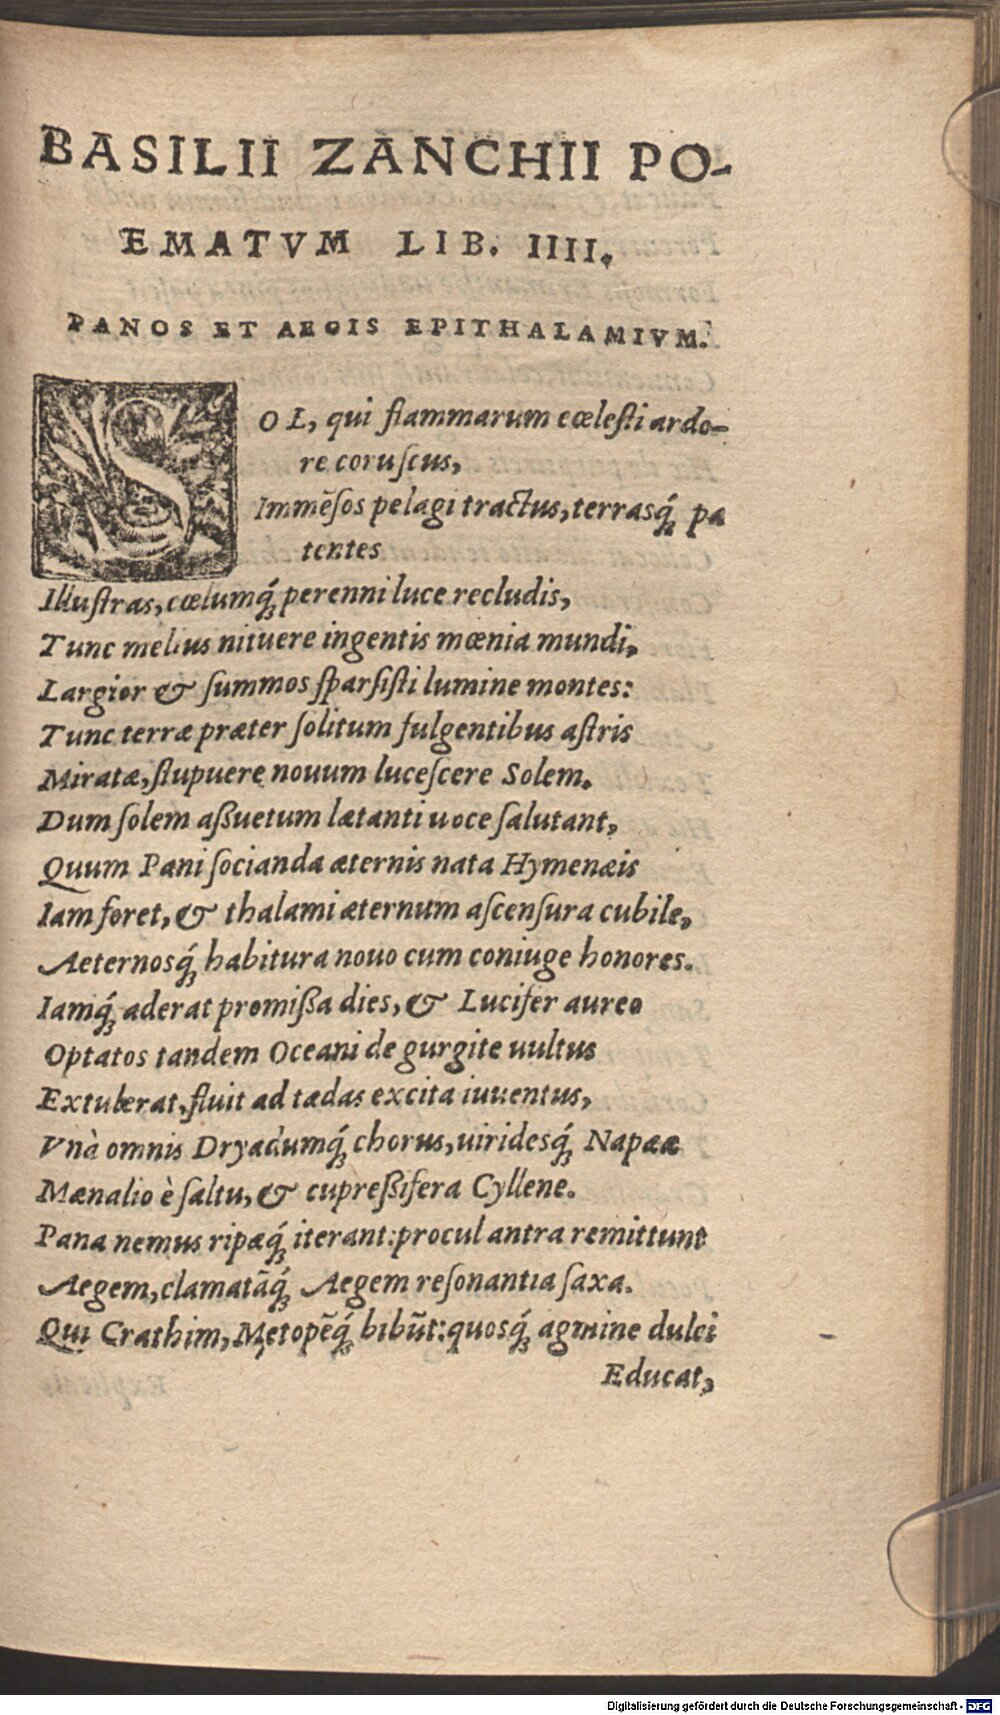 BASILII ZANCHII PO-
EMATVM LIB. IIII.
PANOS ET AEGIS EPITHALAMIVM.
SOL, qui flammarum cœleſti ardo-
re coruſcus,
Immẽſos pelagi tractus, terrasq́ꝫ pa
tentes
Illuſtras, cœlumq́ꝫ perenni luce recludis,
Tunc melius nituere ingentis mœnia mundi,
Largior & ſummos ſparſiſti lumine montes:
Tunc terræ præter ſolitum fulgentibus aſtris
Miratæ, ſtupuere nouum luceſcere Solem.
Dum ſolem aßuetum lætanti uoce ſalutant,
Quum Pani ſocianda æternis nata Hymenæis
Iam foret, & thalami æternum aſcenſura cubile,
Aeternosq́ꝫ habitura nouo cum coniuge honores.
Iamq́ꝫ aderat promißa dies, & Lucifer aureo
Optatos tandem Oceani de gurgite uultus
Extulerat, fluit ad tædas excita iuuentus,
Vnà omnis Dryadumq́ꝫ chorus, uiridesq́ꝫ Napææ
Mænalio è ſaltu, & cupreßifera Cyllene.
Pana nemus ripæq́ꝫ iterant: procul antra remittunt
Aegem, clamatãq́ꝫ Aegem reſonantia ſaxa.
Qui Crathim, Metopẽq́ꝫ bibũt: quosq́ꝫ agmine dulci
Educat,
Digitalisierung gefördert durch die Deutsche Forschungsgemeinschaft - DFG